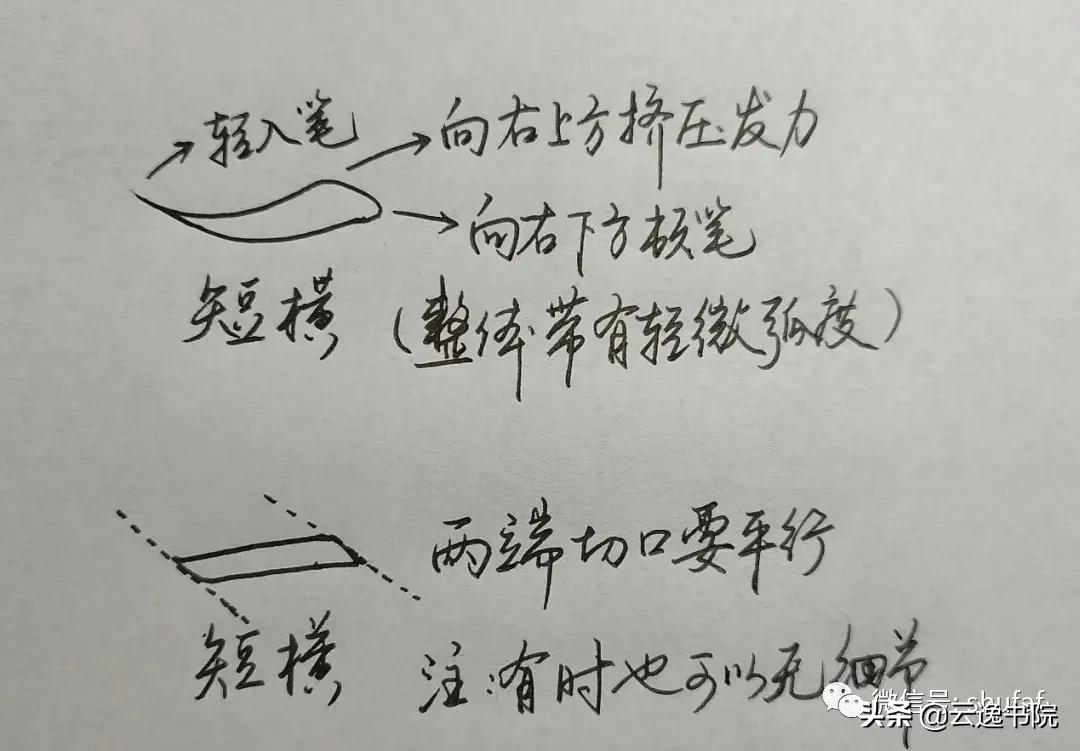 轻入笔 向右上方挤压发力
向右下方顿笔
短横 (整体带有轻微弧度)
两端切口要平行
短横 注:有时也可以无细节
微信号: shufaf
头条 @云逸书院